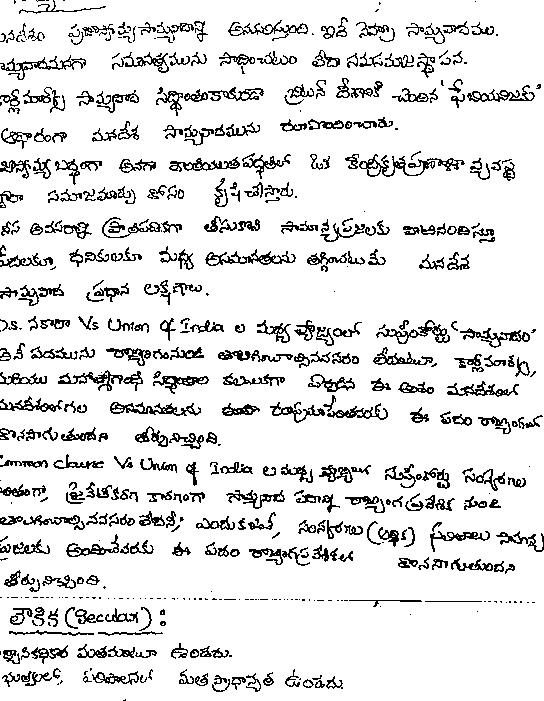 మనదేశం ప్రజాస్వామ్య సామ్యవాదాన్ని అనుసరిస్తుంది. ఇదే నెహ్రూ సామ్యవాదము.
సామ్యవాదమనగా సమానత్వమును సాధించటం లేదా సమసమాజ స్థాపన.
కార్ల్‌మార్క్స్ సామ్యవాద సిద్ధాంతం కాకుండా బ్రిటన్ దేశానికి చెందిన 'ఫేబియనిజం'
ఆధారంగా మనదేశ సామ్యవాదమును రూపొందించారు.
అనగా శాంతియుత పద్ధతిలో ఒక కేంద్రీకృత ప్రణాళికా వ్యవస్థ
ద్వారా సమాజమార్పు కోసం కృషి చేస్తారు.
కనీస అవసరాన్ని ప్రాతిపదికగా తీసుకొని సామాన్య ప్రజలకు అందిస్తూ
పేదలకూ, ధనికులకూ మధ్య అసమానతలను తగ్గించటమే మనదేశ
సామ్యవాద ప్రధాన లక్షణాలు.
D.S. నకారా Vs Union of India ల మధ్య వ్యాజ్యంలో సుప్రీంకోర్టు 'సామ్యవాదం'
అనే పదమును రాజ్యాంగం నుండి తొలగించాల్సినవసరం లేదంటూ, కార్ల్‌మార్క్స్,
మరియు మహాత్మాగాంధీ సిద్ధాంతాల కలయికగా ఏర్పడిన ఈ అంశం మనదేశంలో
మనదేశంలోగల అసమానతలను ఈ పదం రాజ్యాంగంలో
కొనసాగుతుందని తీర్పునిచ్చింది.
Common clause Vs Union of India ల మధ్య వ్యాజ్యంలో సుప్రీంకోర్టు సంస్కరణల
ప్రైవేటీకరణ కారణంగా సామ్యవాద పదాన్ని రాజ్యాంగ ప్రవేశిక నుండి
తొలగించాల్సినవసరం లేదనీ, ఎందుకంటే, సంస్కరణల (ఆర్థిక) ఫలితాలు సామాన్య
ప్రజలకు అందించేవరకు ఈ పదం రాజ్యాంగప్రవేశికలో కొనసాగుతుందని
తీర్పునిచ్చింది.
లౌకిక (Secular) :
రాజ్యానికధికార మతమంటూ ఉండదు.
పరిపాలనలో మత ప్రాధాన్యత ఉండదు.